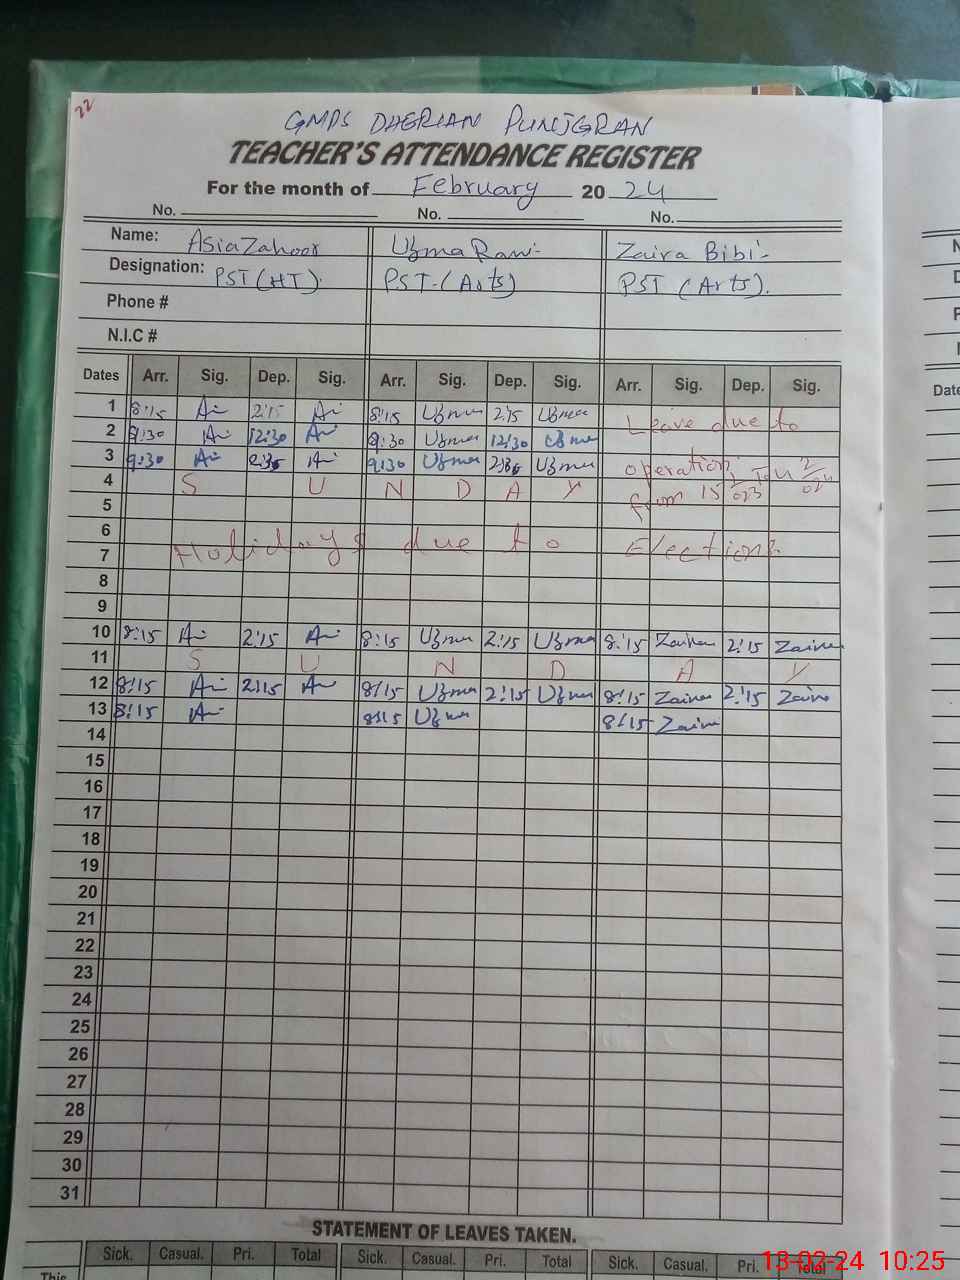 22
GMPS DHERIAN PUNJGRAN
TEACHER'S ATTENDANCE REGISTER
For the month of February 20 24
No. No. No.
Name: Asia Zahoor Uzma Rani Zaira Bibi
Designation: PST (HT). PST (Arts) PST (Arts).
Phone #
N.I.C #
Dates Arr. Sig. Dep. Sig. Arr. Sig. Dep. Sig. Arr. Sig. Dep. Sig.
1 8:15 2:15 8:15 Uzma 2:15 Uzma Leave due to
2 9:30 12:30 9:30 Uzma 12:30 Uzma
3 9:30 2:30 9:30 Uzma 2:30 Uzma operation
4 S U N D A Y from 15
5
6
7 Holidays due to Elections
8
9
10 8:15 2:15 8:15 Uzma 2:15 Uzma 8:15 Zaira 2:15 Zaira
11 S U N D A Y
12 8:15 2:15 8:15 Uzma 2:15 Uzma 8:15 Zaira 2:15 Zaira
13 8:15 8:15 Uzma 8:15 Zaira
14
15
16
17
18
19
20
21
22
23
24
25
26
27
28
29
30
31
STATEMENT OF LEAVES TAKEN.
Sick. Casual. Pri. Total Sick. Casual. Pri. Total Sick. Casual. Pri. Total
This
Date
13-02-24 10:25